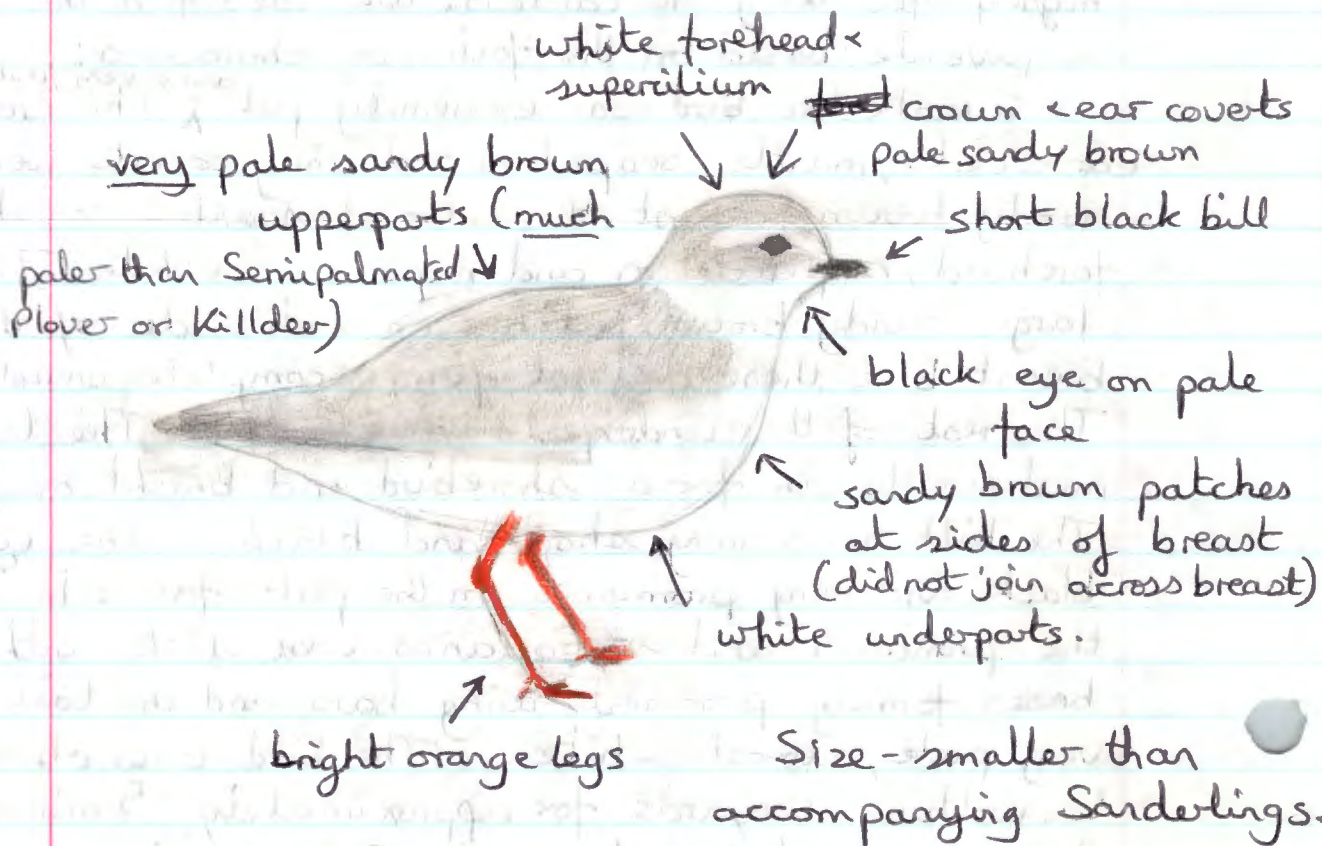 white forehead &
supercilium
crown & ear coverts
pale sandy brown
very pale sandy brown
upperparts (much
paler than Semipalmated
Plover or Killdeer)
short black bill
black eye on pale
face
sandy brown patches
at sides of breast
(did not join across breast)
white underparts.
bright orange legs
Size - smaller than
accompanying Sanderlings.